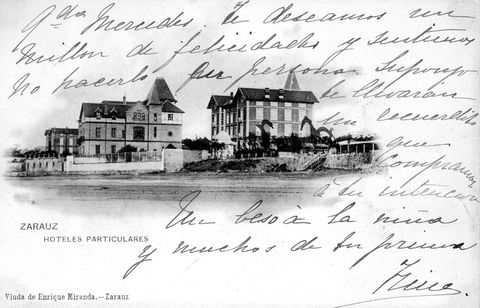 Qda Mercedes Te deseamos un
millon de felicidades y sentimos
no hacerlo por persona. Supongo
te llevarán
un recuerdito
que
compramos
a tu intención
ZARAUZ
HOTELES PARTICULARES
Un beso á la niña
y muchos de tu prima
Viuda de Enrique Miranda.—Zarauz